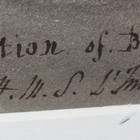 tion of B
H.M.S. L'In